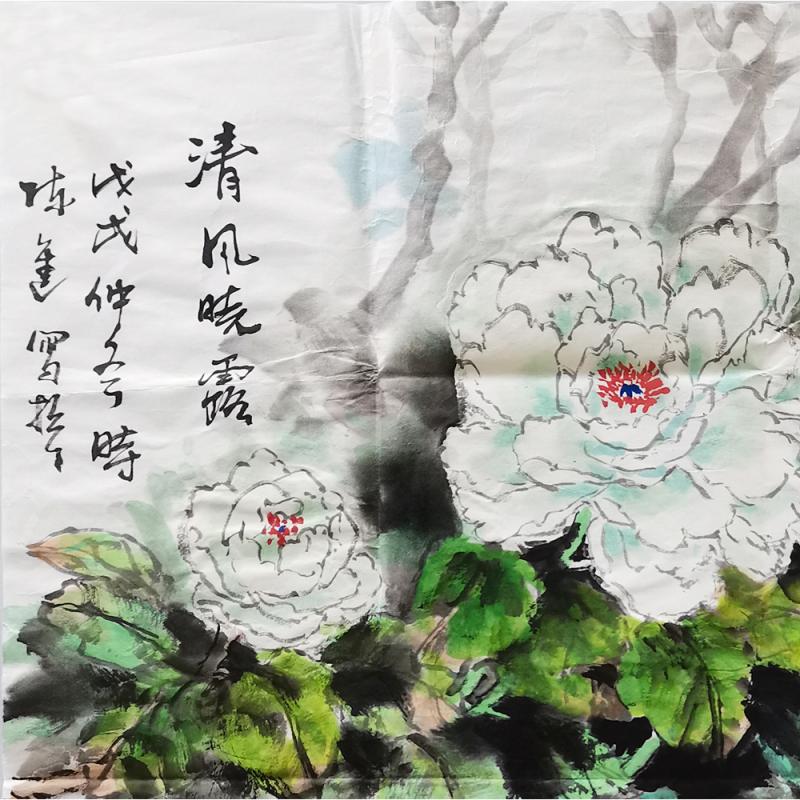 清风晓露
戊戌仲冬时
陈
写于